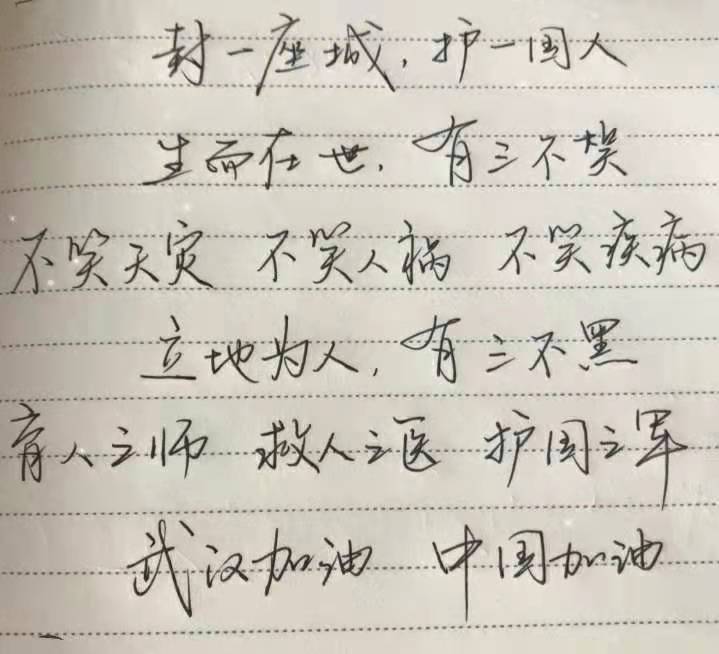 封一座城，护一国人
生而在世，有三不笑
不笑天灾 不笑人祸 不笑疾病
立地为人，有三不黑
育人之师 救人之医 护国之军
武汉加油 中国加油